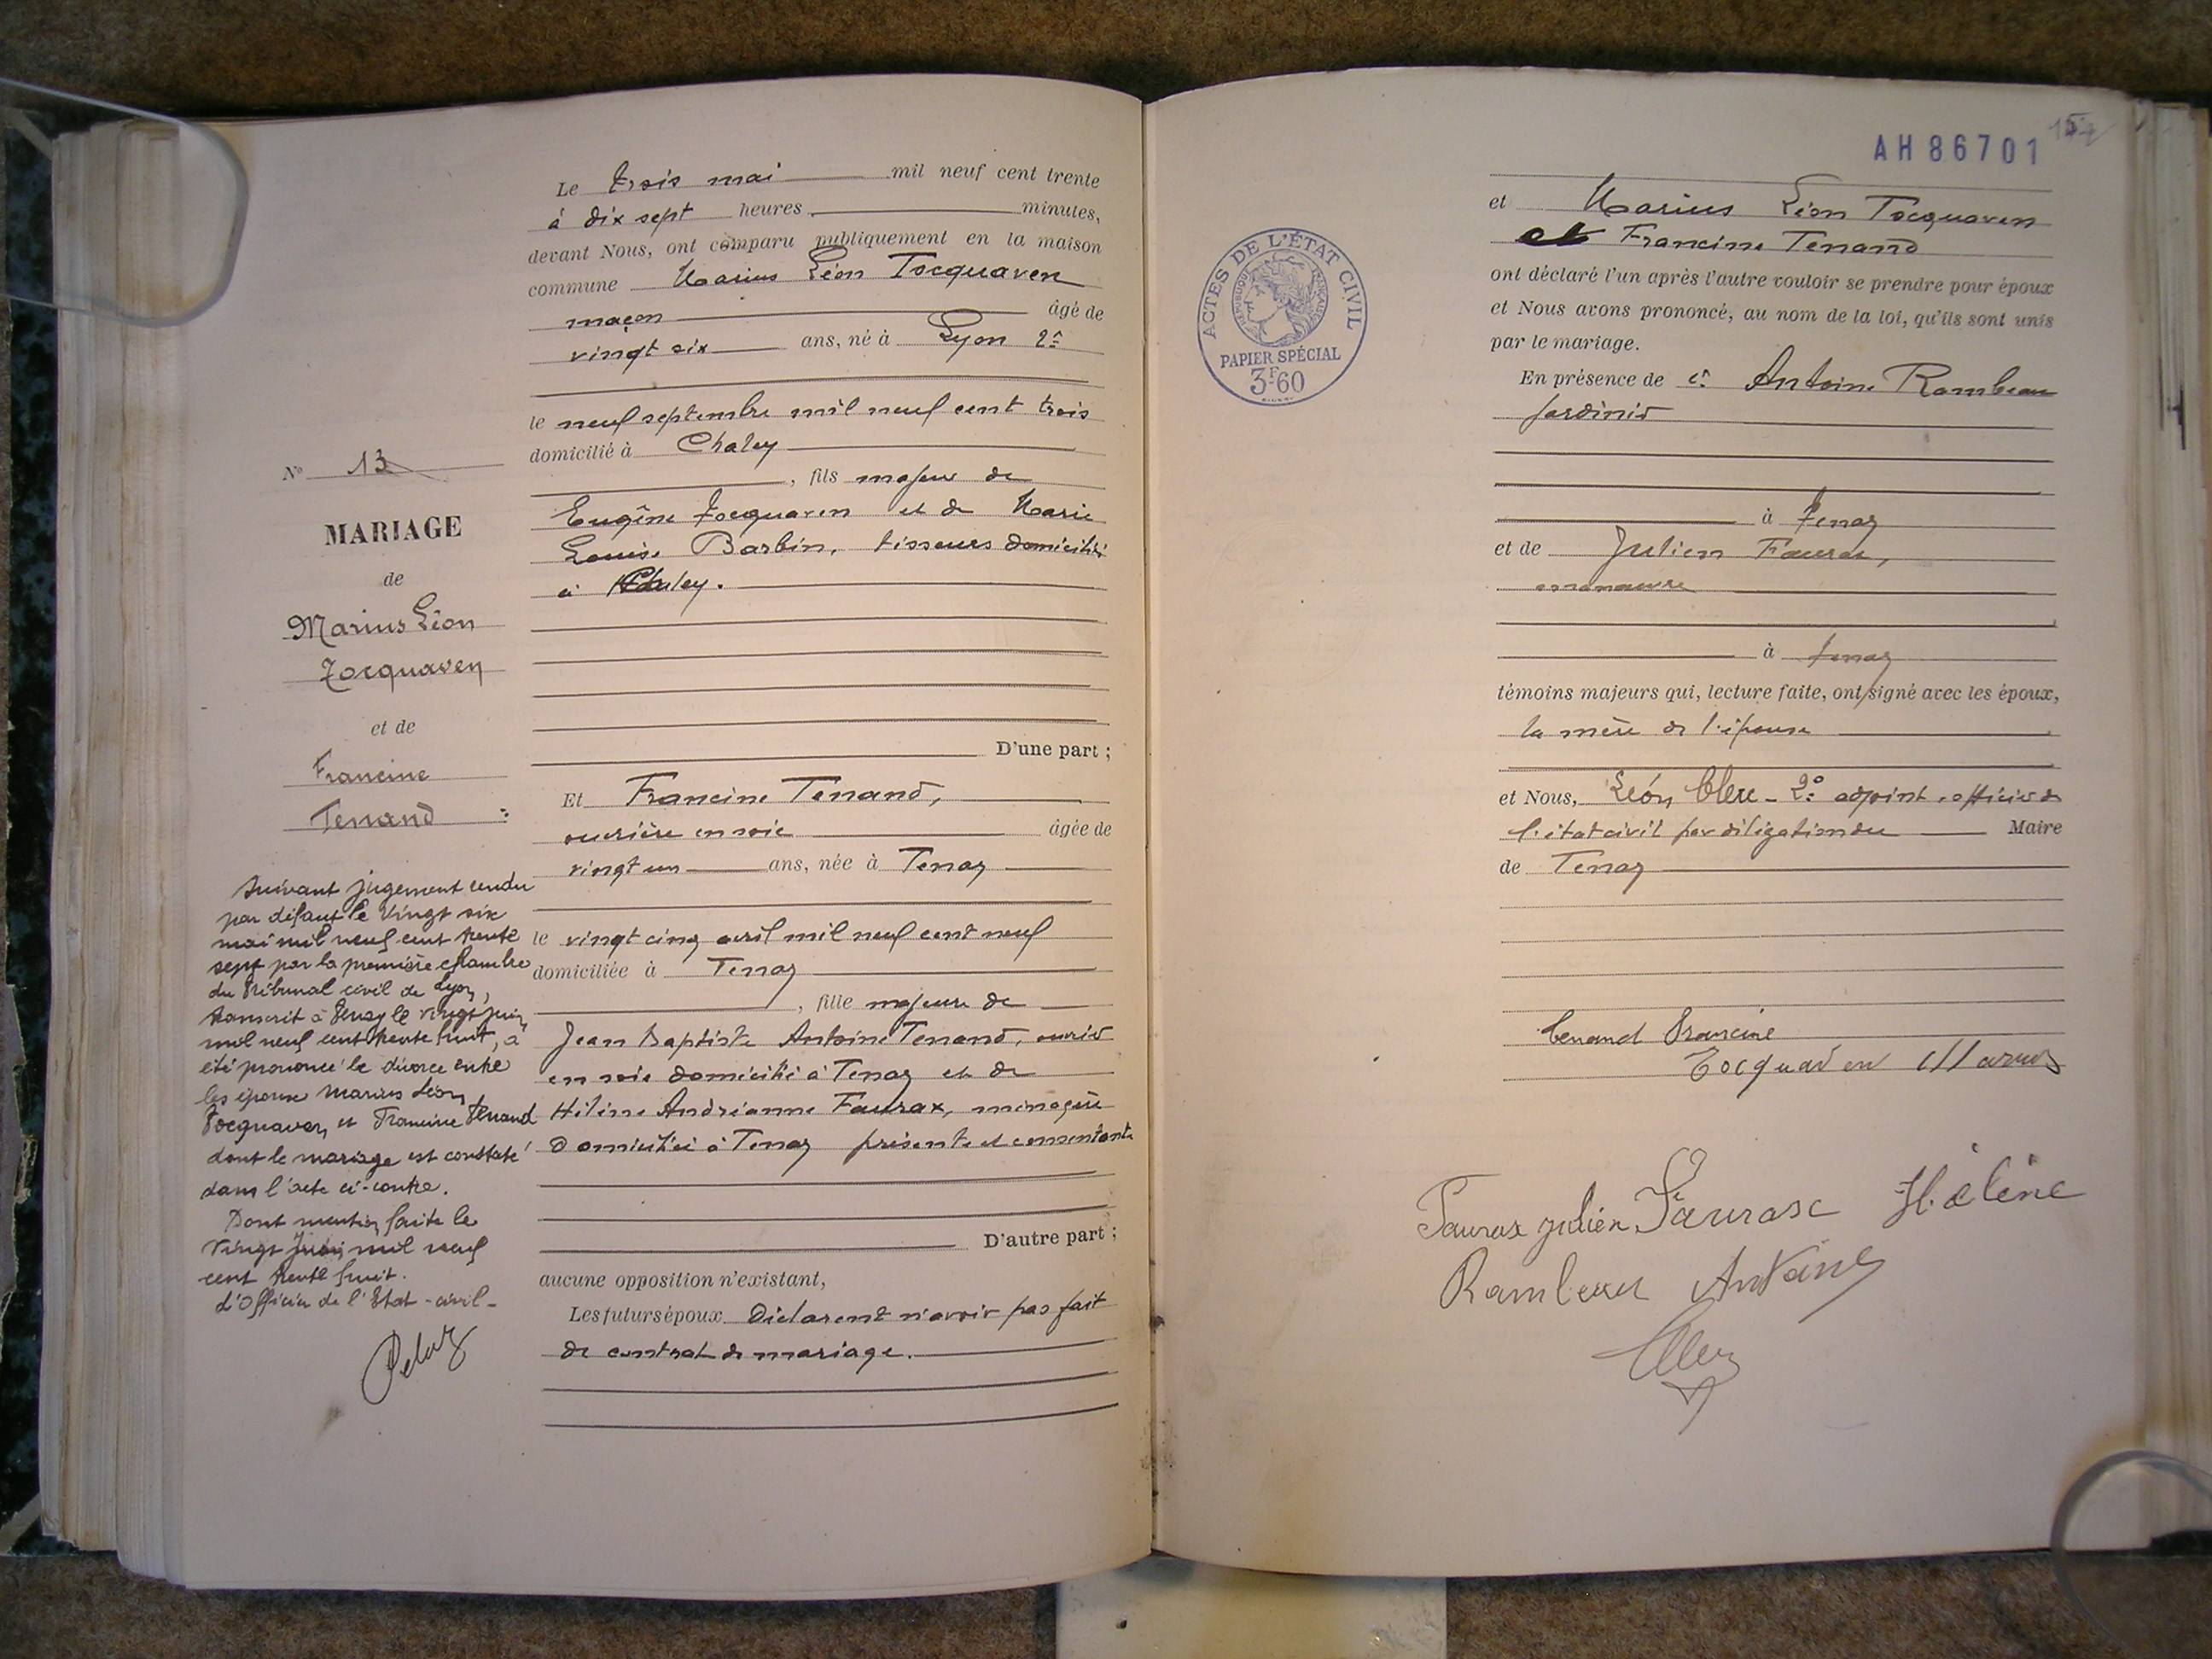 Le trois mai mil neuf cent trente
à dix sept heures minutes,
devant Nous, ont comparu publiquement en la maison
commune Marius Léon Tocquaven
maçon âgé de
vingt six ans, né à Lyon 2e
le neuf septembre mil neuf cent trois
domicilié à Chaley
, fils majeur de
Eugène Tocquaven et de Marie
Louise Barbin, tisseurs domiciliés
à Chaley.
D'une part ;
Et Francine Tenand,
ouvrière en soie âgée de
vingt un ans, née à Tenay
le vingt cinq avril mil neuf cent neuf
domiciliée à Tenay
, fille majeure de
Jean Baptiste Antoine Tenand, ouvrier
en soie domicilié à Tenay et de
Hélène Andrianne Faurax, ménagère
domiciliée à Tenay présente et consentante
D'autre part ;
aucune opposition n'existant,
Les futurs époux Déclarent n'avoir pas fait
de contrat de mariage.
No 13
MARIAGE
de
Marius Léon
Tocquaven
et de
Francine
Tenand
Suivant jugement rendu
par défaut le vingt six
mai mil neuf cent trente
sept par la première chambre
du Tribunal civil de Lyon,
transcrit à Tenay le vingt juin
mil neuf cent trente huit, a
été prononcé le divorce entre
les époux Marius Léon
Tocquaven et Francine Tenand
dont le mariage est constaté
dans l'acte ci-contre.
Dont mention faite le
vingt juin mil neuf
cent trente huit.
L'Officier de l'Etat-civil-
AH 86701
ACTES DE L'ÉTAT CIVIL
RÉPUBLIQUE FRANÇAISE
PAPIER SPÉCIAL
3F60
et Marius Léon Tocquaven
et Francine Tenand
ont déclaré l'un après l'autre vouloir se prendre pour époux
et Nous avons prononcé, au nom de la loi, qu'ils sont unis
par le mariage.
En présence de Antoine Rambeau
Jardinier
à Tenay
et de Julien Faurax,
manœuvre
à Tenay
témoins majeurs qui, lecture faite, ont signé avec les époux,
la mère de l'épouse
et Nous, Léon Clerc - 2e adjoint, officier de
l'état civil par délégation du Maire
de Tenay
Tenand Francine
Tocquaven Marius
Faurax julien Faurax Hélène
Rambeau Antoine